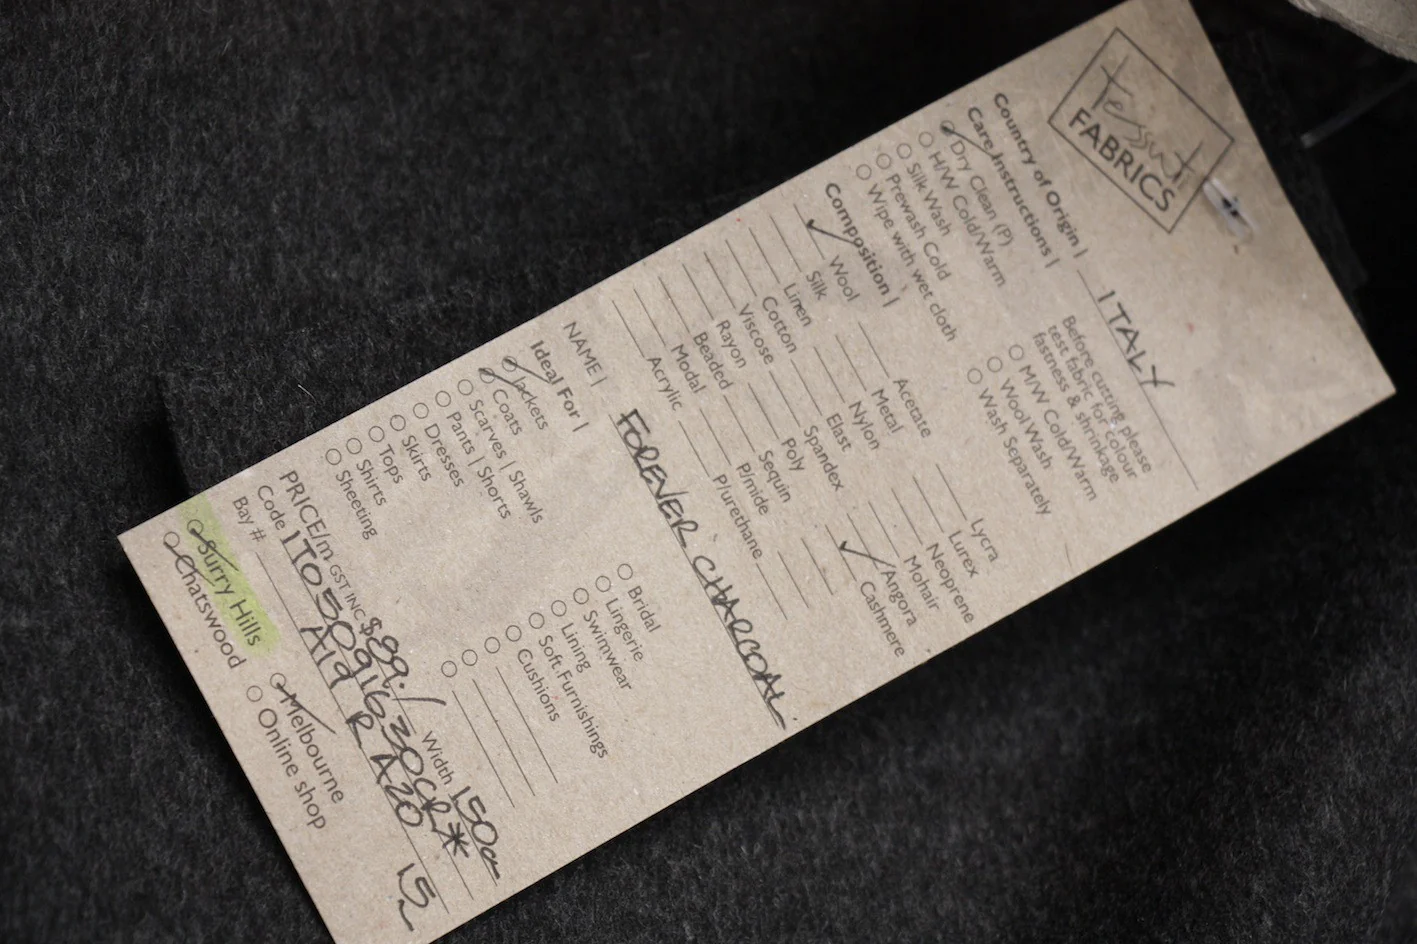 tessuti
FABRICS
Country of Origin | ITALY
Care Instructions |
Dry Clean (P)
H/W Cold/Warm
Silk Wash
Prewash Cold
Wipe with wet cloth
Before cutting please
test fabric for colour
fastness & shrinkage
M/W Cold/Warm
Wool Wash
Wash Separately
Composition |
✓ Wool
Silk
Linen
Cotton
Viscose
Rayon
Beaded
Modal
Acrylic
Acetate
Metal
Nylon
Elast
Spandex
Poly
Sequin
P/mide
P/urethane
Lycra
Lurex
Neoprene
Mohair
Angora
✓ Cashmere
NAME | FOREVER CHARCOAL
Ideal For |
Jackets
Coats
Scarves | Shawls
Pants | Shorts
Dresses
Skirts
Tops
Shirts
Sheeting
Bridal
Lingerie
Swimwear
Lining
Soft Furnishings
Cushions
PRICE/m GST INC $89./ Width 150cm
Code 1T05091630CR*
Bay # A19 R A20 15
Surry Hills
Chatswood
Melbourne
Online shop